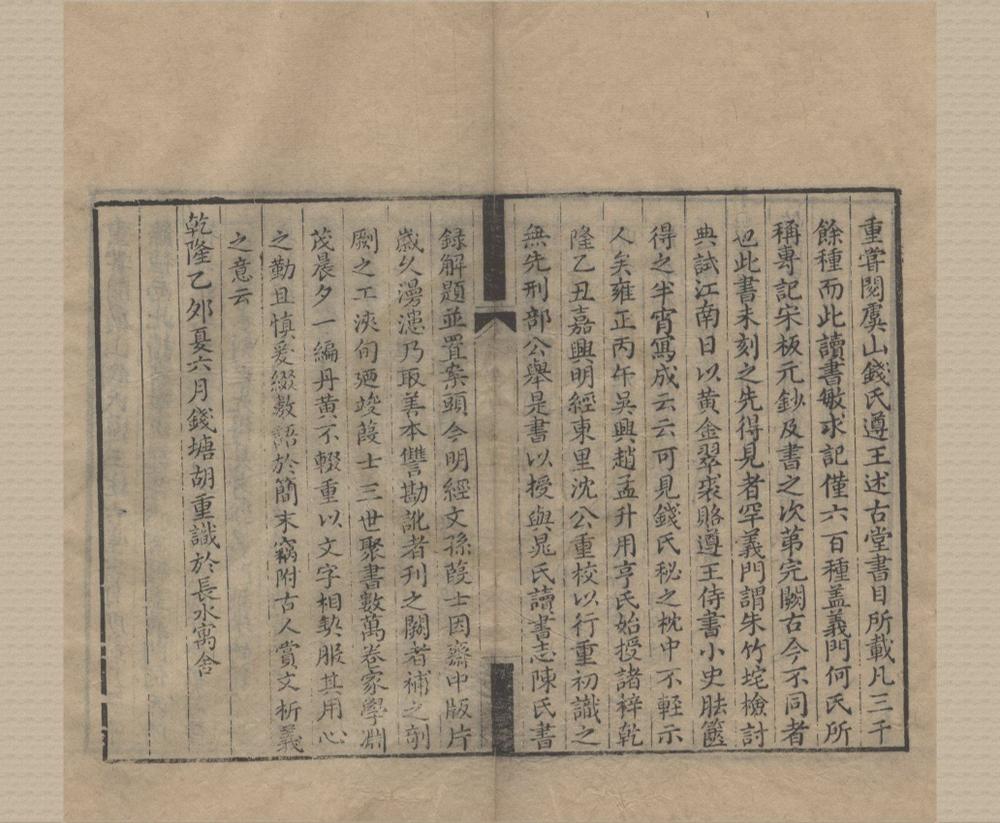 重甞閱虞山錢氏遵王述古堂書目所載凡三千
餘種而此讀書敏求記僅六百種盖義門何氏所
稱專記宋板元鈔及書之次苐完闕古今不同者
也此書未刻之先得見者罕義門謂朱竹垞檢討
典試江南日以黄金翠裘賂遵王侍書小史胠篋
得之半宵寫成云云可見錢氏秘之枕中不軽示
人矣雍正丙午吳興趙孟升用亨氏始授諸梓乾
隆乙丑嘉興明經東里沈公重校以行重初識之
無先刑部公舉是書以授與晁氏讀書志陳氏書
録解題並置案頭今明經文孫葭士因齋中版片
嵗久漫漶乃取善本讐勘訛者刊之闕者補之剞
劂之工浹旬廼竣葭士三世聚書數萬卷家學淵
茂晨夕一編丹黄不輟重以文字相契服其用心
之勤且慎爰綴數語於簡末竊附古人賞文析義
之意云
乾隆乙夘夏六月錢塘胡重識於長水寓舍